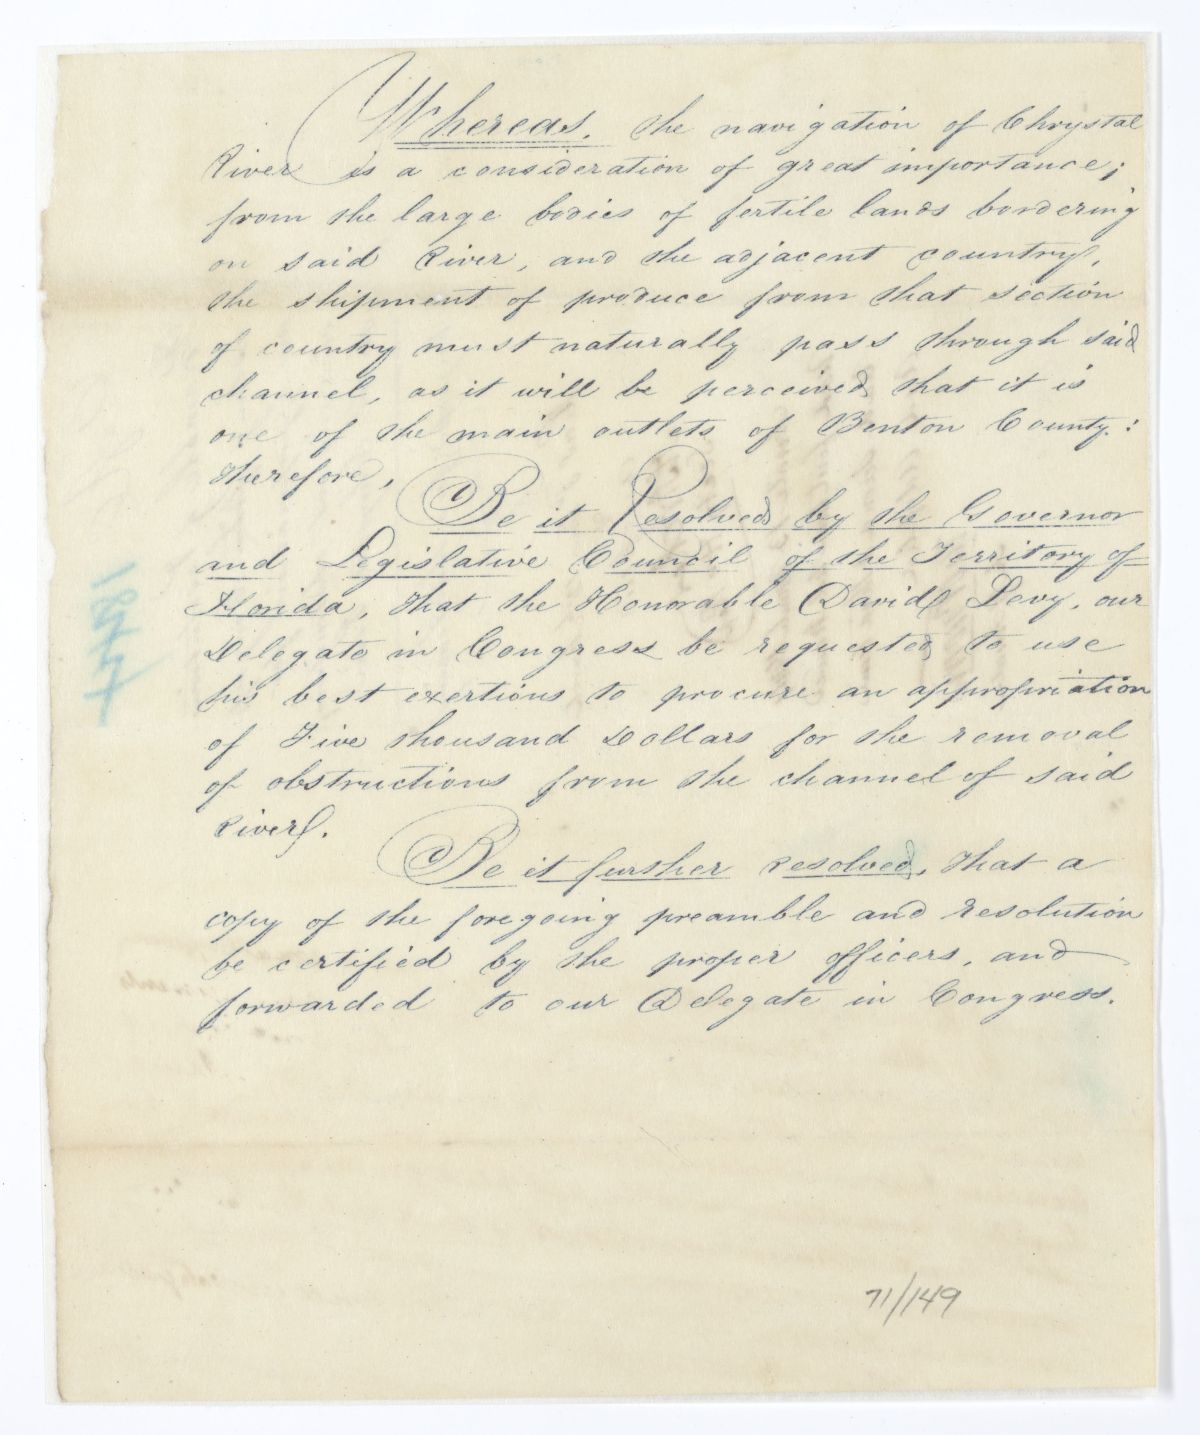 Whereas, the navigation of Chrystal
River is a consideration of great importance;
from the large bodies of fertile lands bordering
on said River, and the adjacent country,
the shipment of produce from that section
of country must naturally pass through said
channel, as it will be perceived, that it is
one of the main outlets of Benton County:
therefore,
Be it Resolved, by the Governor
and Legislative Council of the Territory of
Florida, that the Honorable David Levy, our
Delegate in Congress be requested, to use
his best exertions to procure an appropriation
of Five thousand Dollars for the removal
of obstructions from the channel of said
River.
Be it further resolved, that a
copy of the foregoing preamble and resolution
be certified by the proper officers, and
forwarded to our Delegate in Congress.
1844
71/149